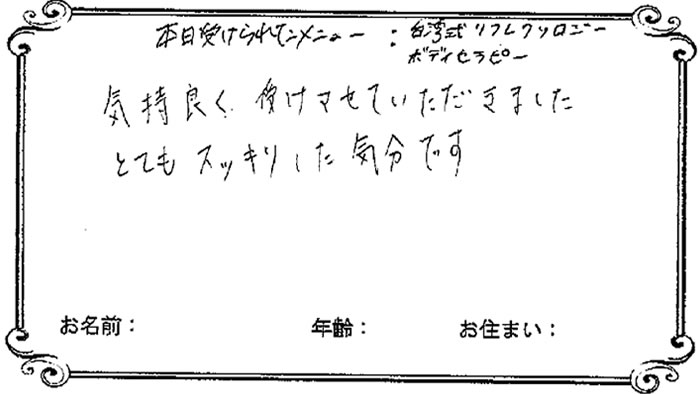 本日受けられたメニュー：台湾式リフレクソロジー
ボディセラピー
気持良く受けさせていただきました
とてもスッキリした気分です
お名前： 年齢： お住まい：